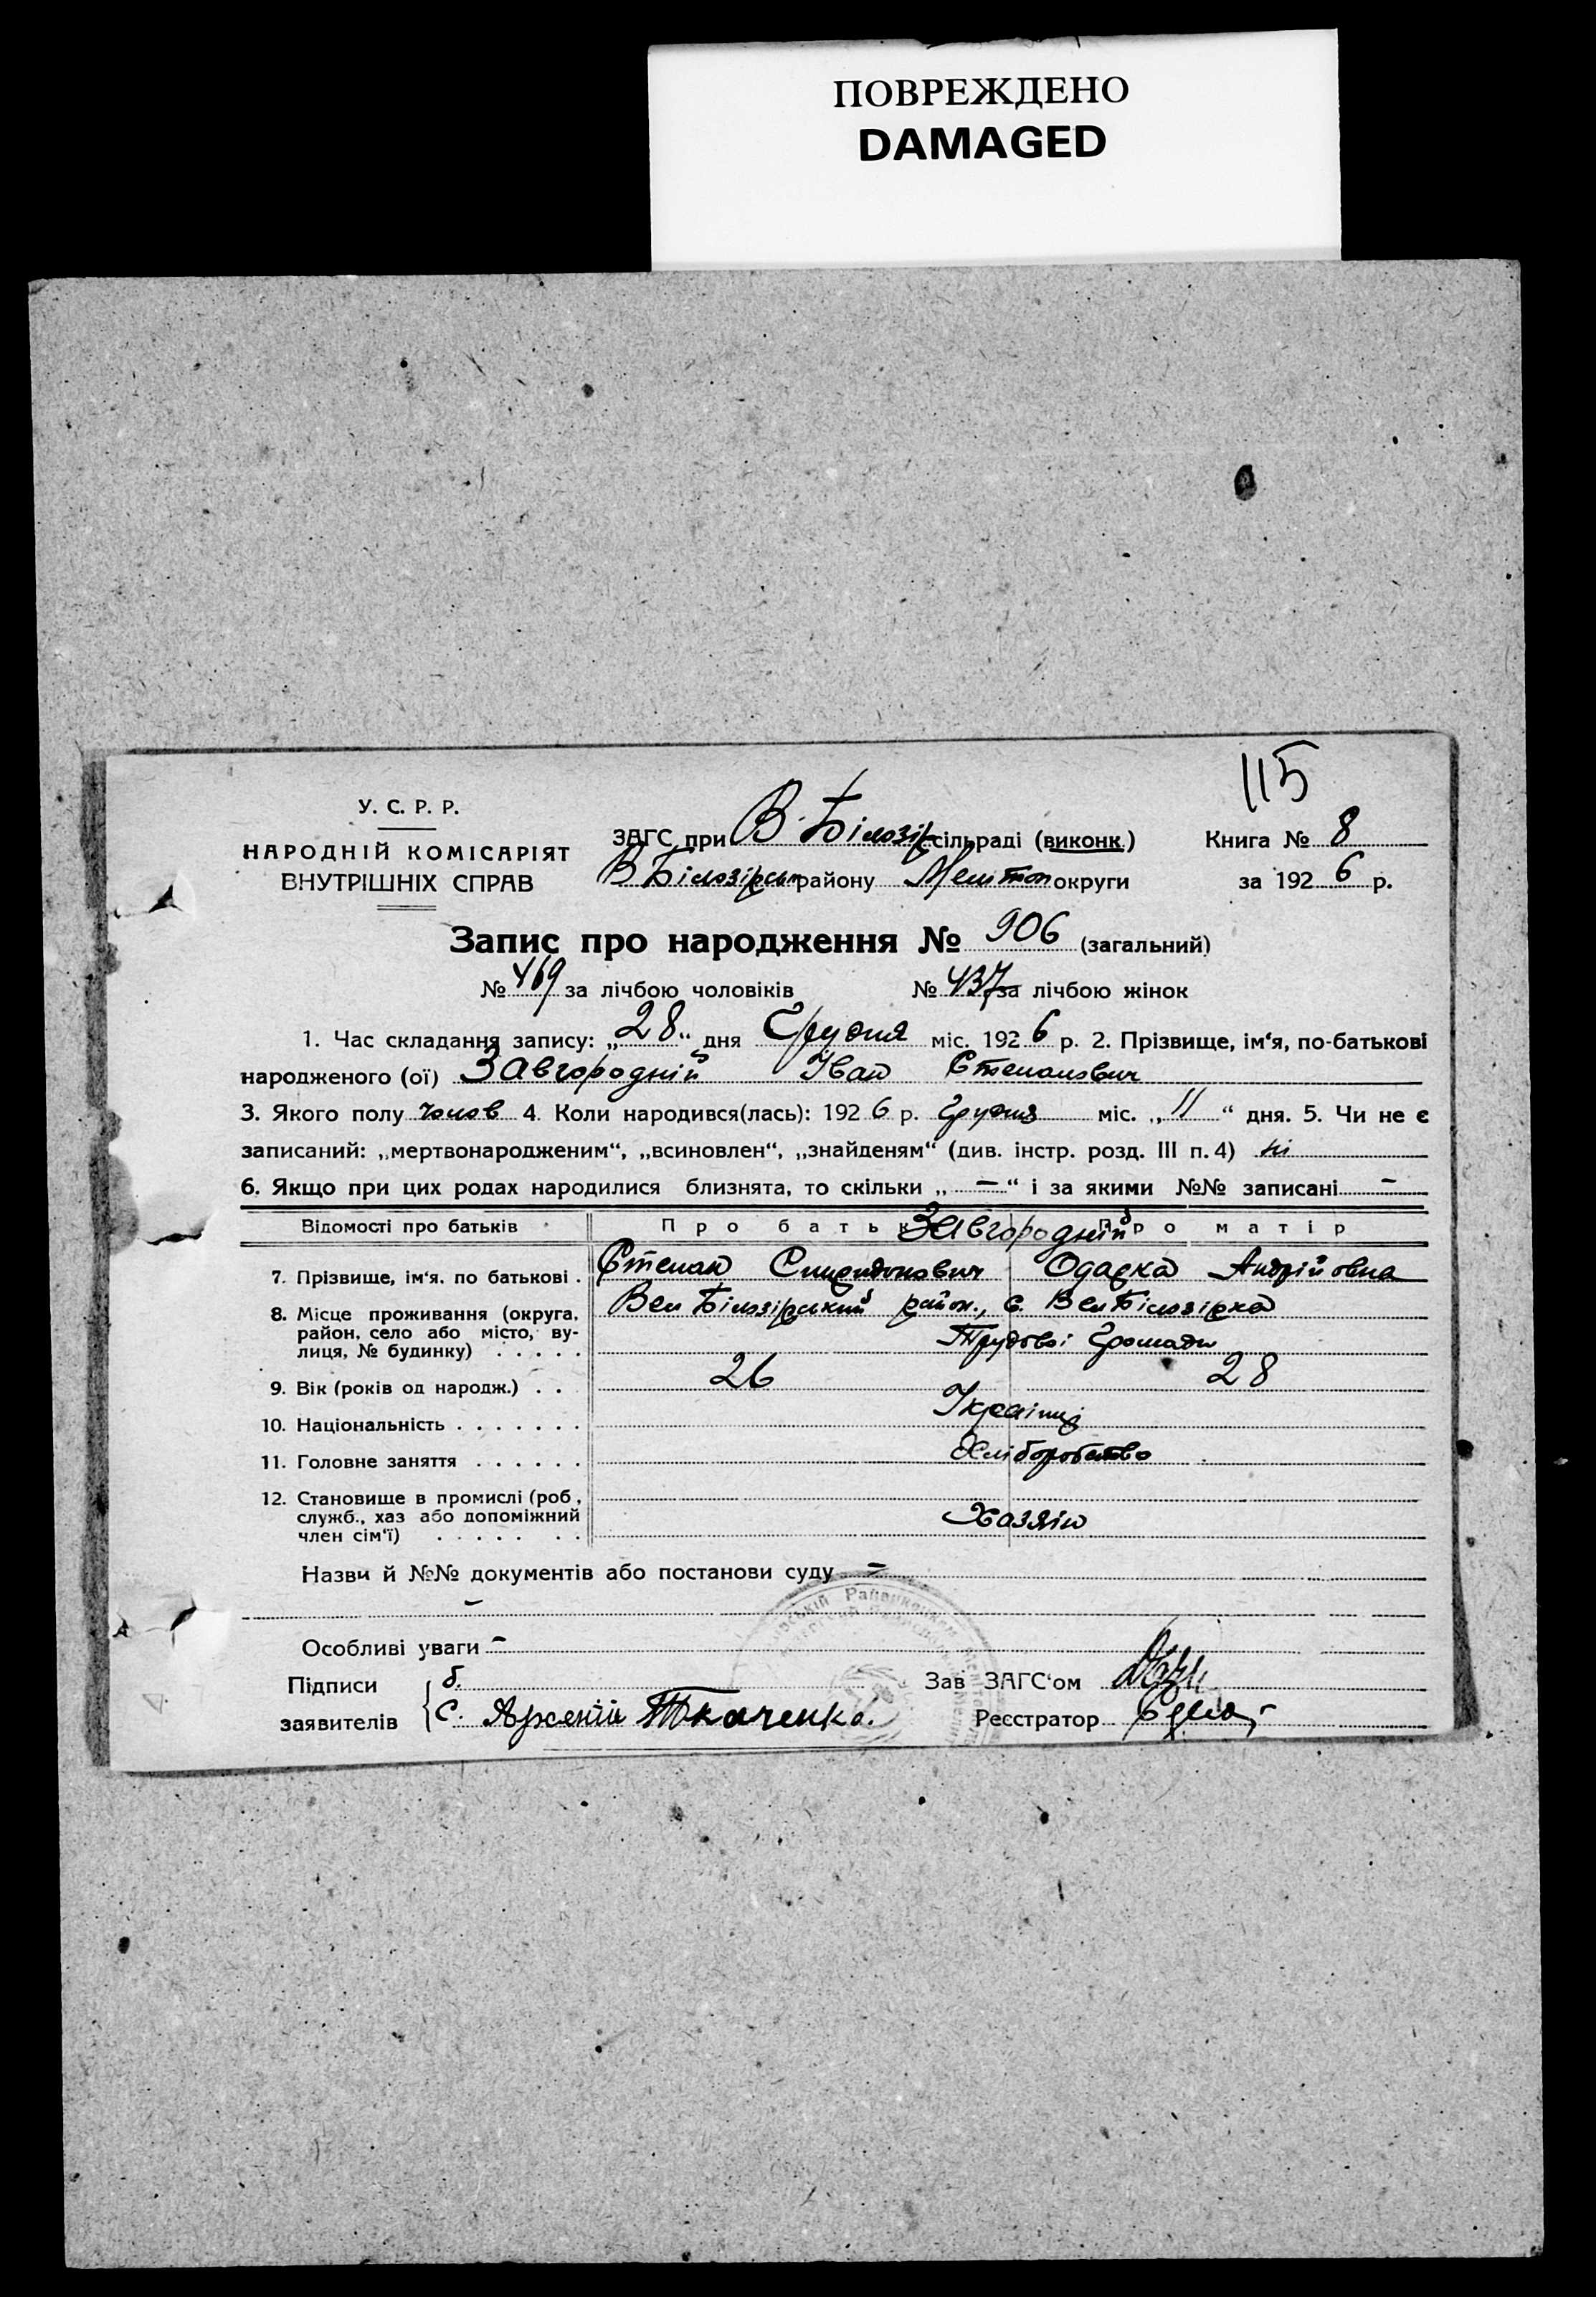 ПОВРЕЖДЕНО
DAMAGED
115
У. С. Р. Р.
НАРОДНІЙ КОМІСАРІЯТ
ВНУТРІШНІХ СПРАВ
ЗАГС при В. Білозір сільраді (виконк.)
В Білозірськ району Мелітоп округи
Книга № 8
за 1926 р.
Запис про народження № 906 (загальний)
№ 469 за лічбою чоловіків № 437 за лічбою жінок
1. Час складання запису: „28“ дня Грудня міс. 1926 р. 2. Прізвище, ім‘я, по-батькові
народженого (ої) Завгородній Іван Степанович
3. Якого полу чолов 4. Коли народився(лась): 1926 р. Грудня міс. „11“ дня. 5. Чи не є
записаний: „мертвонародженим“, „всиновлен“, „знайденям“ (див. інстр. розд. III п. 4) ні
6. Якщо при цих родах народилися близнята, то скільки „—“ і за якими №№ записані —
Відомості про батьків Про батька Про матір
Завгородній
7. Прізвище, ім‘я. по батькові . Степан Спиридонович Одарка Андрійовна
8. Місце проживання (округа, район, село або місто, ву-лиця, № будинку) . . . . . Вел Білозірський район., с. Вел Білозірка
Трудової Громади
9. Вік (років од народж.) . . 26 28
10. Національність . . . . . . . Українці
11. Головне заняття . . . . . . Хліборобство
12. Становище в промислі (роб., служб., хаз або допоміжний член сім‘ї) . . . . . . . Хазяїн
Назви й №№ документів або постанови суду —
—
Особливі уваги —
Підписи заявителів
б.
с. Арсеній Ткаченко.
Зав ЗАГС‘ом
Реєстратор